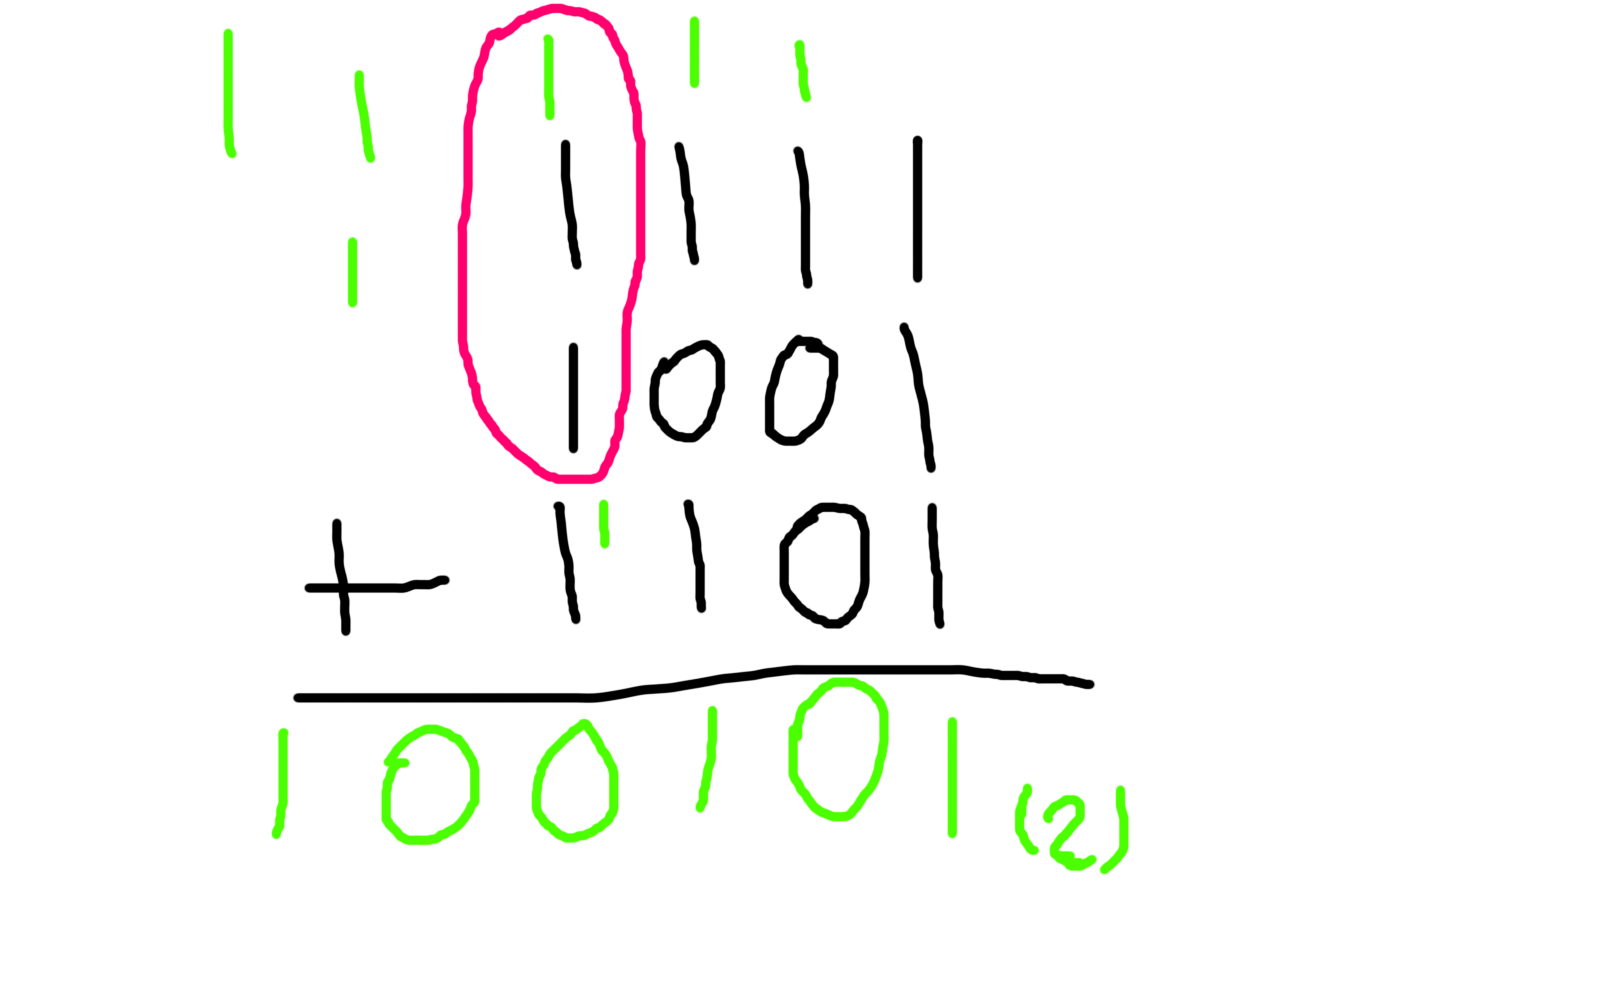 1 1 1 1 1
1 1 1 1 1
1 0 0 1
+ 1 1 1 0 1
1 0 0 1 0 1 (2)